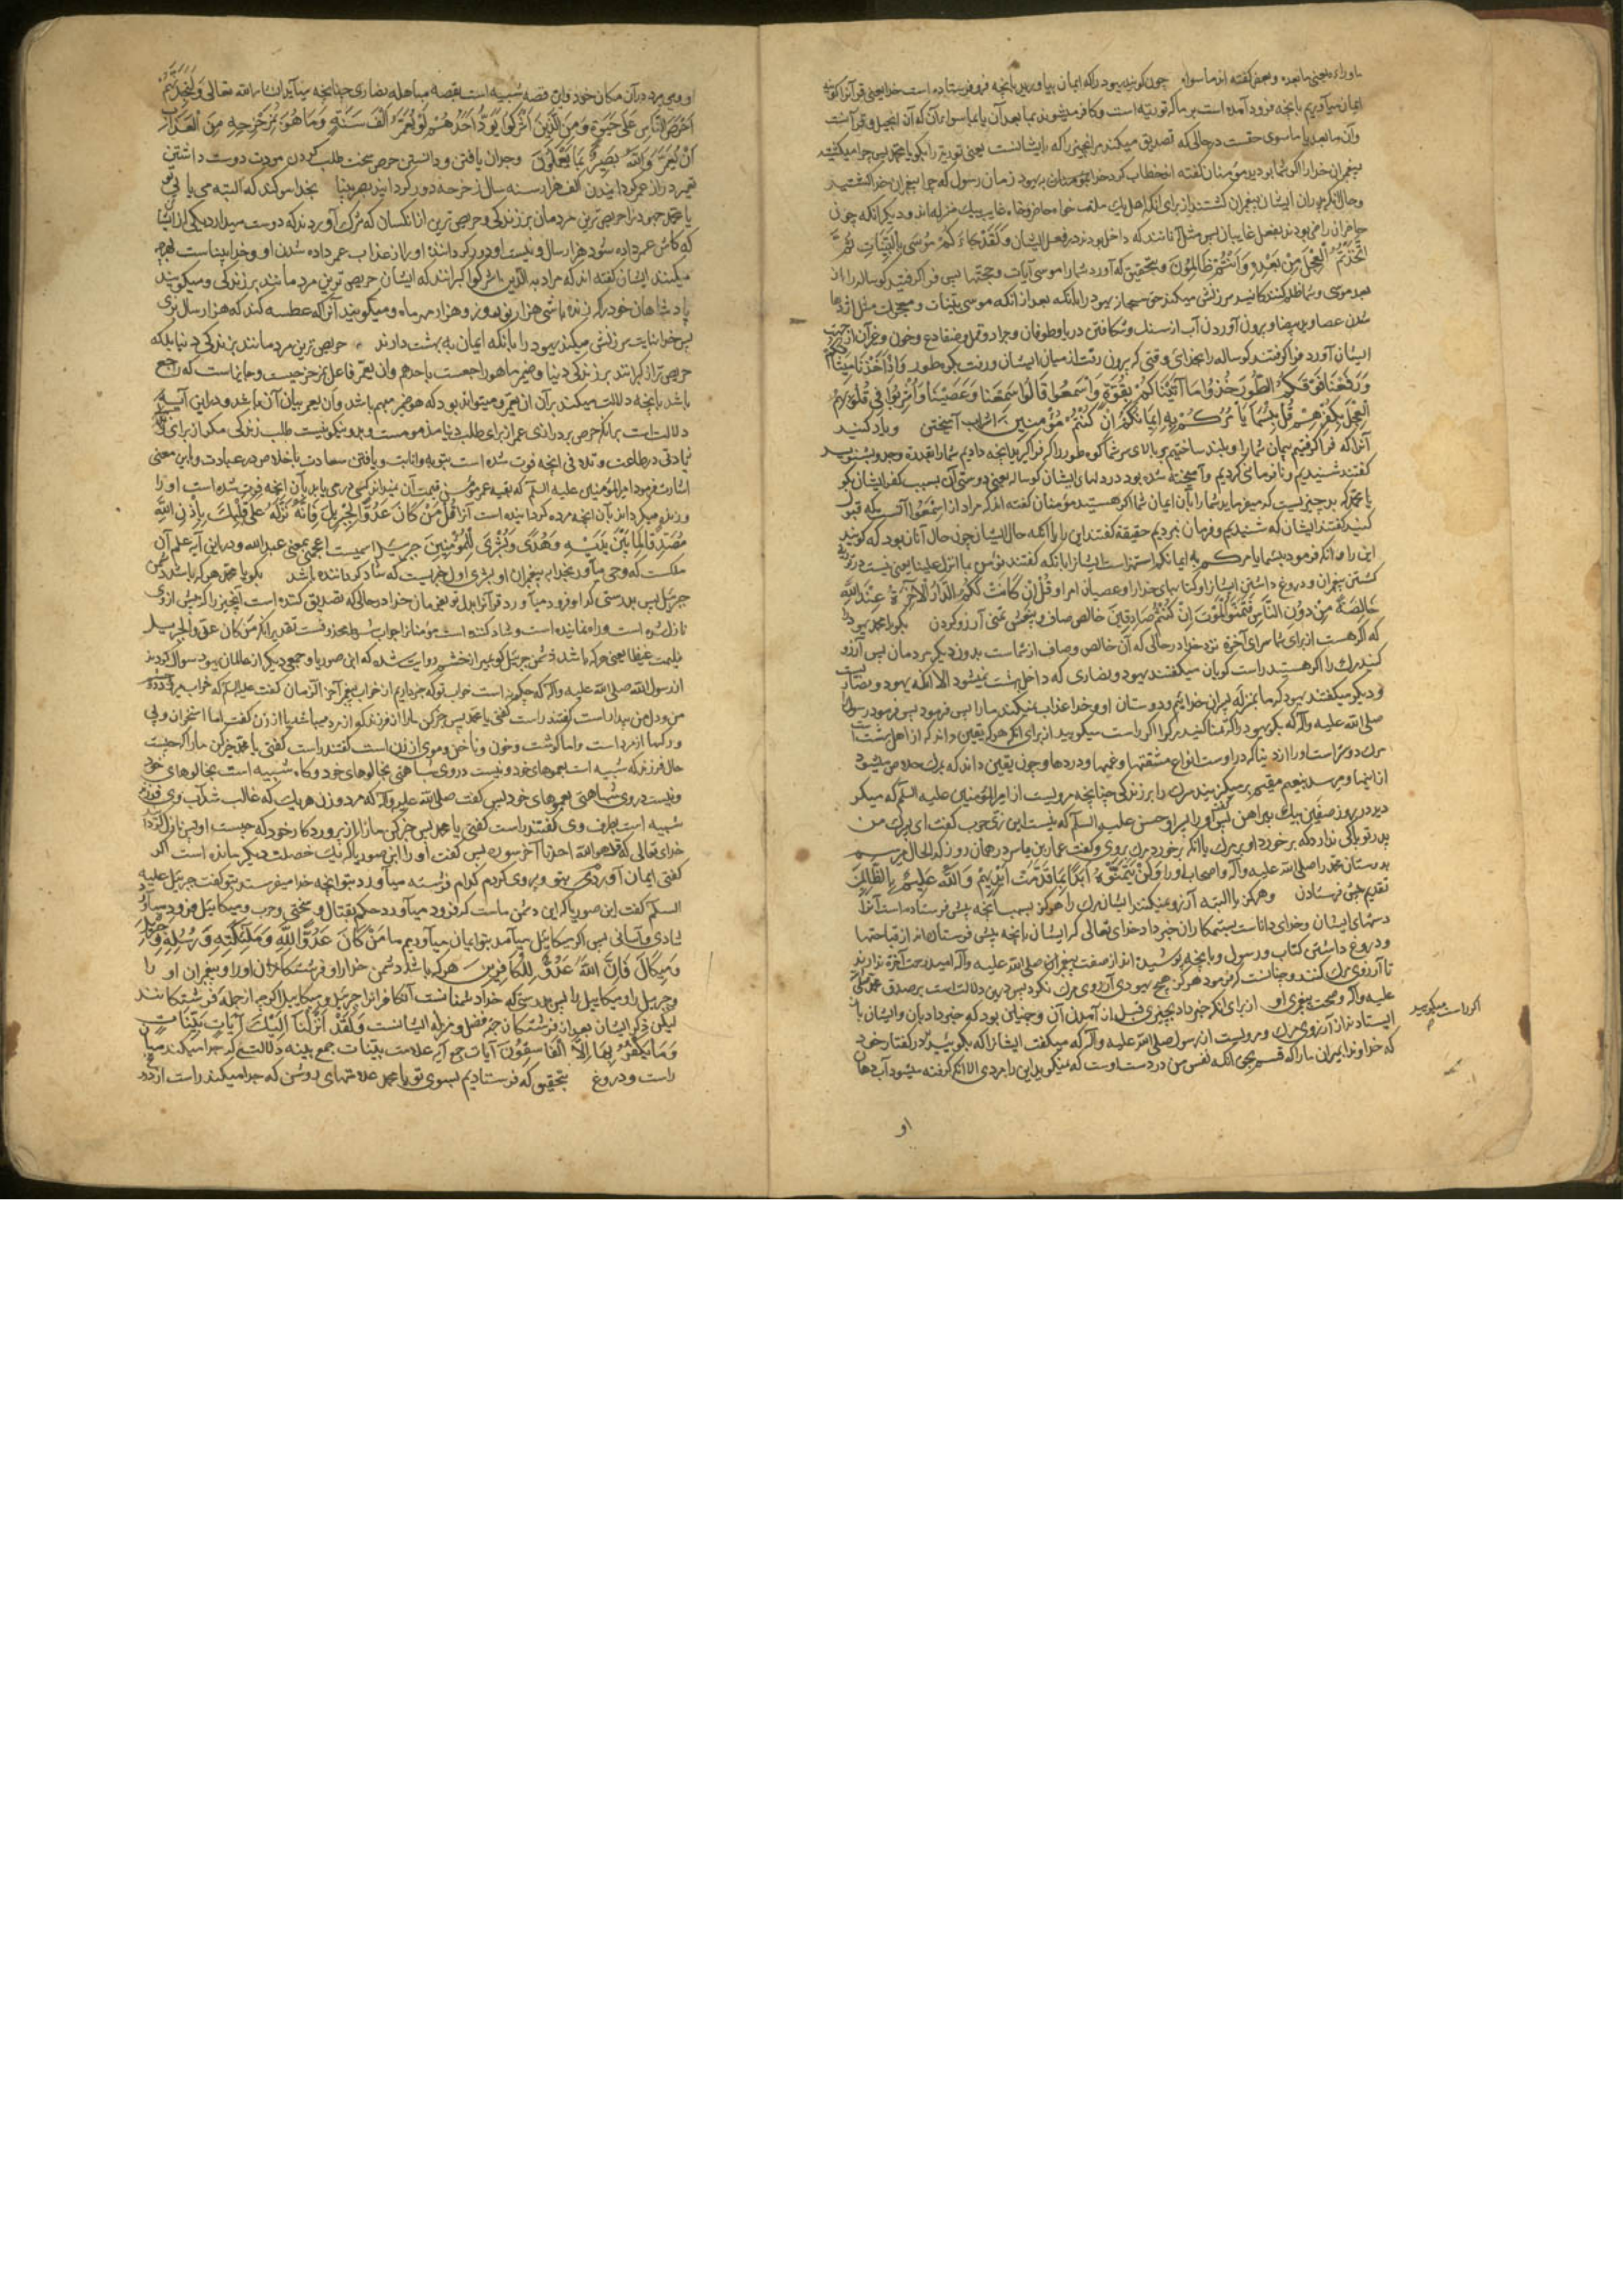 ماوراءه یعنی مابعده و بعضی گفته اند ماسواه چون گویند یهود را که ایمان بیاورید بانچه فرو فرستاده است خدا یعنی قرآن را گویند
ایمان میآوریم بانچه فرود آمده است بر ما که توریة است و کافر میشوند بما بعد آن یا بما سوای آن که آن انجیل و قرآنست
و آن مابعد یا ماسوی حقست در حالی که تصدیق میکند مر انچیزی را که با ایشانست یعنی توریة را بگو یا محمد پس چرا میکشتید
پیغمبران خدا را اگر شما بودید مؤمنان گفته اند خطاب کرد خدا یهود زمان رسول که چرا پیغمبران خدا کشتید
و حال انکه پدران ایشان پیغمبران کشتند از برای انکه اهل یک ملت خواه حاضر و خواه غایب بیک منزله اند و دیگر انکه چون
حاضران راضی بودند بفعل غایبان پس مثل آنانند که داخل بودند در فعل ایشان وَلَقَدْ جَاءَكُمْ مُوسَى بِالْبَيِّنَاتِ ثُمَّ
اتَّخَذْتُمُ الْعِجْلَ مِنْ بَعْدِهِ وَأَنْتُمْ ظَالِمُونَ و بتحقیق که آورد شما را موسی آیات و حجتها پس فرا گرفتید گوساله را از
بعد موسی و شما ظلم کنندگانید سرزنش میکند حق سبحانه یهود را بانکه بعد از انکه موسی بینات و معجزات مثل اژدها
شدن عصا و ید بیضا و برون آوردن آب از سنگ و شکافتن دریا و طوفان و جراد و قمل و ضفادع و خون و غیر آن از جهت
ایشان آورد فرا گرفتند گوساله را بخدای وقتی که برون رفت از میان ایشان و رفت بکوه طور وَإِذْ أَخَذْنَا مِيثَاقَكُمْ
وَرَفَعْنَا فَوْقَكُمُ الطُّورَ خُذُوا مَا آتَيْنَاكُمْ بِقُوَّةٍ وَاسْمَعُوا قَالُوا سَمِعْنَا وَعَصَيْنَا وَأُشْرِبُوا فِي قُلُوبِهِمُ
الْعِجْلَ بِكُفْرِهِمْ قُلْ بِئْسَمَا يَأْمُرُكُمْ بِهِ إِيمَانُكُمْ إِنْ كُنْتُمْ مُؤْمِنِينَ اشراب آمیختن و یاد کنید
آنرا که فرا گرفتیم پیمان شما را و بلند ساختیم بر بالای سر شما کوه طور را که فرا گیرید انچه دادیم شما را بقدرة و جد و بشنوید
گفتند شنیدیم و نافرمانی کردیم و آمیخته شده بود در دلهای ایشان گوساله یعنی دوستی آن بسبب کفر ایشان بگو
یا محمد که بد چیزیست که میفرماید شما را بآن ایمان شما اگر هستید مؤمنان گفته اند که مراد از اسمعوا آنست که قبول
کنید گفتند ایشان که شنیدیم و فرمان نبردیم حقیقة گفتند این را یا انکه حال ایشان چون حال آنان بود که گویند
این را و انکه فرمود بئسما یامرکم به ایمانکم استهزاست بایشان را بانکه گفتند نؤمن بما انزل علینا یعنی نیست در توریة
کشتن پیغمبران و دروغ داشتن ایشان را و کتابهای خدا را و عصیان امر او قُلْ إِنْ كَانَتْ لَكُمُ الدَّارُ الْآخِرَةُ عِنْدَ اللَّهِ
خَالِصَةً مِنْ دُونِ النَّاسِ فَتَمَنَّوُا الْمَوْتَ إِنْ كُنْتُمْ صَادِقِينَ خالص صاف و بیغش تمنی آرزو کردن بگو یا محمد یهود را
که اگر هست از برای شما سرای آخرة نزد خدا در حالی که آن خالص و صاف از شماست بدون دیگر مردمان پس آرزو
کنید مرگ را اگر هستید راست گویان میگفتند یهود و نصاری که داخل بهشت نمیشود الا انکه یهود و نصاریست
و دیگر میگفتند یهود که ما بمنزله پسران خدائیم و دوستان او و خدا عذاب نمیکند ما را پس فرمود پس فرمود رسول
صلی الله علیه وآله که بگو یهود را که تمنا کنید مرگ را اگر راست میگویید از برای انکه هر که یقین داند که از اهل بهشت است
مرگ دوستر است او را از دنیا که در اوست انواع مشقتها و غمها و دردها و چون یقین داند که بمرگ خلاص میشود
از اینها و میرسد بنعیم مقیم بر میگزیند مرگ را بر زندگی چنانچه مرویست از امیرالمؤمنین علیه السلم که میگر
دید در روز صفین بیک پیراهن گفت او را پسر او حسن علیه السلم که نیست این زی حرب گفت ای پسرک من
پدر تو باکی ندارد که بر خورد او بر مرگ یا انکه بر خورد مرگ بروی و گفت عمار بن یاسر در همان روز که الحال میرسم
بدوستان محمد را صلی الله علیه وآله و اصحاب او را وَلَنْ يَتَمَنَّوْهُ أَبَدًا بِمَا قَدَّمَتْ أَيْدِيهِمْ وَاللَّهُ عَلِيمٌ بِالظَّالِمِينَ
تقدیم پیش فرستادن و هرگز باالبته آرزو نمیکنند ایشان مرگ را هرگز بسبب انچه پیش فرستاده است آنرا
دستهای ایشان و خدای داناست بستمکاران خبر داد خدای تعالی که ایشان بانچه پیش فرستاده اند از قباحتها
و دروغ داشتن کتاب و رسول و بانچه پوشیده اند از صفت پیغمبران صلی الله علیه وآله امید رحمت آخرة ندارند
تا آرزوی مرگ کنند و چنانست که فرمود هرگز هیچ یهودی آرزوی مرگ نکرد پس درین دلالت است بر صدق محمد صلی الله
علیه وآله و صحت پیغمبری او از برای انکه خبر داد بچیزی قبل از آمدن آن و چنان بود که خبر داد بآن و ایشان باز
ایستادند از آرزوی مرگ و مرویست از رسول صلی الله علیه وآله که میگفت ایشان را که بگویید در گفتار خود
که خداوندا بمیران ما را که قسم بحق انکه نفس من در دست اوست که نمیگوید این را مردی الا انکه گرفته میشود آب دهان
اگر راست میگویید
او
او و میمیرد در آن مکان خود و این قصه شبیه است بقصه مباهله نصاری چنانچه میآید ان شاء الله تعالی وَلَتَجِدَنَّهُمْ
أَحْرَصَ النَّاسِ عَلَى حَيَوةٍ وَمِنَ الَّذِينَ أَشْرَكُوا يَوَدُّ أَحَدُهُمْ لَوْ يُعَمَّرُ أَلْفَ سَنَةٍ وَمَا هُوَ بِمُزَحْزِحِهِ مِنَ الْعَذَابِ
أَنْ يُعَمَّرَ وَاللَّهُ بَصِيرٌ بِمَا يَعْمَلُونَ وجدان یافتن و دانستن حرص سخت طلب کردن مودت دوست داشتن
تعمیر دراز عمر گردانیدن الف هزار سنه سال زحزحه دور گردانید بصیر بینا بخدا سوگند که البته می یابی تو
یا محمد جهودان را حریص ترین مردمان بر زندگی و حریص ترین از انکسان که شرک آوردند که دوست میدارد یکی از ایشان
که کاش عمر داده شود هزار سال و نیست او دور گرداننده او را از عذاب عمر داده شدن او و خدا بیناست بانچه
میکنند ایشان گفته اند که مراد به الذین اشرکوا گبرانند که ایشان حریص ترین مردمانند بر زندگی و میگویند
پادشاهان خود را که زنده باشی هزار نوروز و هزار مهرماه و میگویند آنرا که عطسه کند که هزار سال بزی
پس خدا بنایت سرزنش میکند یهود را بانکه ایمان به بهشت دارند حریص ترین مردمانند بزندگی دنیا بلکه
حریص تر از گبرانند بر زندگی دنیا و ضمیر ما هو راجعست باحدهم و ان یعمر فاعل بمزحزحیست و جایز است که راجع
باشد بانچه دلالت میکند بر آن از یعمر و میتواند بود که هو ضمیر مبهم باشد و ان یعمر بیان آن باشد و در این آیه
دلالت است بر انکه حرص بر درازی عمر از برای طلب دنیا مذمومست و برو نیکو نیست طلب زندگی مگر از برای
زیادتی در طاعت و تلافی انچه فوت شده است بتوبه و انابت و یافتن سعادت باخلاص در عبادت و باین معنی
اشارت فرمود امیرالمؤمنین علیه السلم که بقیه عمر مؤمن قیمت آن نمیداند کسی در می یابد بآن انچه فوت شده است او را
و زنده میگرداند بآن انچه مرده گردانیده است آنرا قُلْ مَنْ كَانَ عَدُوًّا لِجِبْرِيلَ فَإِنَّهُ نَزَّلَهُ عَلَى قَلْبِكَ بِإِذْنِ اللَّهِ
مُصَدِّقًا لِمَا بَيْنَ يَدَيْهِ وَهُدًى وَبُشْرَى لِلْمُؤْمِنِينَ جبرئیل اسمیست اعجمی بمعنی عبدالله و در این آیه علم آن
ملکست که وحی میآورد بخدا بر پیغمبران او بشری اول خبریست که شاد گرداننده باشد بگو یا محمد هر که باشد دشمن
جبرئیل پس بدرستی که او فرود میآورد قرآن را بدل تو بفرمان خدا در حالی که تصدیق کننده است انچیز را که پیش از وی
نازل شده است و راه نماینده است و شاد کننده است مؤمنان را جواب شرط محذوفست تقدیر انکه من کان عدوا لجبریل
فلیمت غیظا یعنی هر که باشد دشمن جبرئیل گو بمیر از خشم روایت شده که ابن صوریا و جمعی دیگر از عالمان یهود سوال کردند
از رسول الله صلی الله علیه وآله که چگونه است خواب تو که خبر داریم از خواب پیغمبر آخر الزمان گفت علیه السلم که خواب میرود دیده
من و دل من بیدار است گفتند راست گفتی یا محمد پس خبر کن ما را از فرزند که از مرد میباشد یا از زن گفت اما استخوان و پی
و رگها از مرد است و اما گوشت و خون و ناخن و موی از زن است گفتند راست گفتی یا محمد خبر کن ما را که چیست
حال فرزند که شبیه است بعموهای خود و نیست در وی شباهتی بخالوهای خود و گاه شبیه است بخالوهای خود
و نیست در وی شباهتی بعموهای خود پس گفت صلی الله علیه وآله که مرد و زن هر یک که غالب شد آب وی فرزند
شبیه است بطرف وی گفتند راست گفتی یا محمد پس خبر کن ما را از پروردگار خود که چیست او پس نازل کرد
خدای تعالی که قل هو الله احد تا آخر سوره پس گفت او را ابن صوریا که یک خصلت دیگر مانده است اگر
گفتی ایمان آوردم بتو و پیروی کردم کدام فرشته میآورد بتو انچه خدا میفرستد بتو گفت جبرئیل علیه
السلم گفت ابن صوریا که این دشمن ماست که فرود میآورد حکم بقتال و سختی و حرب و میکائیل فرود میآورد
شادی و آسانی پس اگر میکائیل میآمد بتو ایمان میآوردیم ما مَنْ كَانَ عَدُوًّا لِلَّهِ وَمَلَئِكَتِهِ وَرُسُلِهِ وَجِبْرِيلَ
وَمِيكَالَ فَإِنَّ اللَّهَ عَدُوٌّ لِلْكَافِرِينَ هر که باشد دشمن خدا را و فرشتگان او را و پیغمبران او را
و جبریل را و میکاییل را پس بدرستی که خدا دشمنانست آن کافران را جبرئیل و میکاییل اگرچه از جمله فرشتگانند
لیکن ذکر ایشان بعد از فرشتگان جهة فضل و منزله ایشانست وَلَقَدْ أَنْزَلْنَا إِلَيْكَ آيَاتٍ بَيِّنَاتٍ
وَمَا يَكْفُرُ بِهَا إِلَّا الْفَاسِقُونَ آیات جمع آیه علامت بینات جمع بینه دلالت که جدا میکند میان
راست و دروغ بتحقیق که فرستادیم بسوی تو یا محمد علامتهای روشن که جدا میکند راست از دروغ